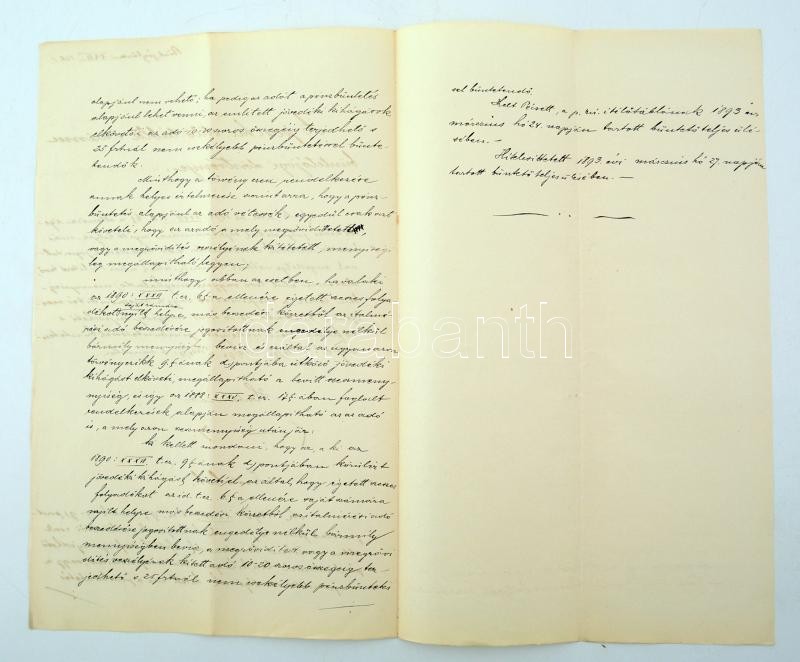 alapjául nem vehető; ha pedig az adót a pénzbüntetés
alapjául lehet venni, az említett jövedéki kihágások
elkövetői az adó 10-20szoros összegéig terjedhető s
25 frtnál nem csekélyebb pénzbüntetéssel bünte-
tendők.
Minthogy a törvény ezen rendelkezése
annak helyes értelmezése szerint arra, hogy a pénz-
büntetés alapjául az adó vétessék, egyedül csak azt
követeli, hogy az az adó, a mely megrövidíttetett,
vagy a megrövidítés veszélyének kitétetett, mennyisé-
leg megállapítható legyen;
minthogy abban az esetben, ha valaki
az 1890: XXXVI t.cz. 6§.a ellenére égetett szeszes folya-
dékot saját számára
nyílt helyre, más beszedési körzetből az italmé-
rési adó beszedésére jogosítottnak engedélye nélkül
bármily mennyiségben bevisz és ezáltal az ugyanazon
törvényczikk 9.§-ának d) pontjába ütköző jövedéki
kihágást elköveti, megállapítható a bevitt szeszmeny-
nyiség, és így az 1888: XXXV. t.cz. 17§.ában foglalt
rendelkezések alapján megállapítható az az adó
is, a mely azon szeszmennyiség után jár:
Ki kellett mondani, hogy az, a ki az
1890: XXXVI. t.cz. 9§.ának d) pontjában körülírt
jövedéki kihágást követi el az által, hogy égetett szeszes
folyadékot az id. t.cz 6§.a ellenére saját számára
nyílt helyre más beszedési körzetből az italmérési adó
beszedésére jogosítottnak engedélye nélkül bármily
mennyiségben bevisz, a megrövidített, vagy a megrövi-
dítés veszélyének kitett adó 10-20 szoros összegéig ter-
jedhető s 25 frtról nem csekélyebb pénzbüntetés-
sel büntetendő.
Kelt Pécsett, a p. kir. itélőtáblának 1893 évi
márczius hó 24. napján tartott büntető teljes ülé-
sében. —
Hitelesíttetett 1893 évi márczius hó 27. napján
tartott büntető teljes ülésében. —
darabanth